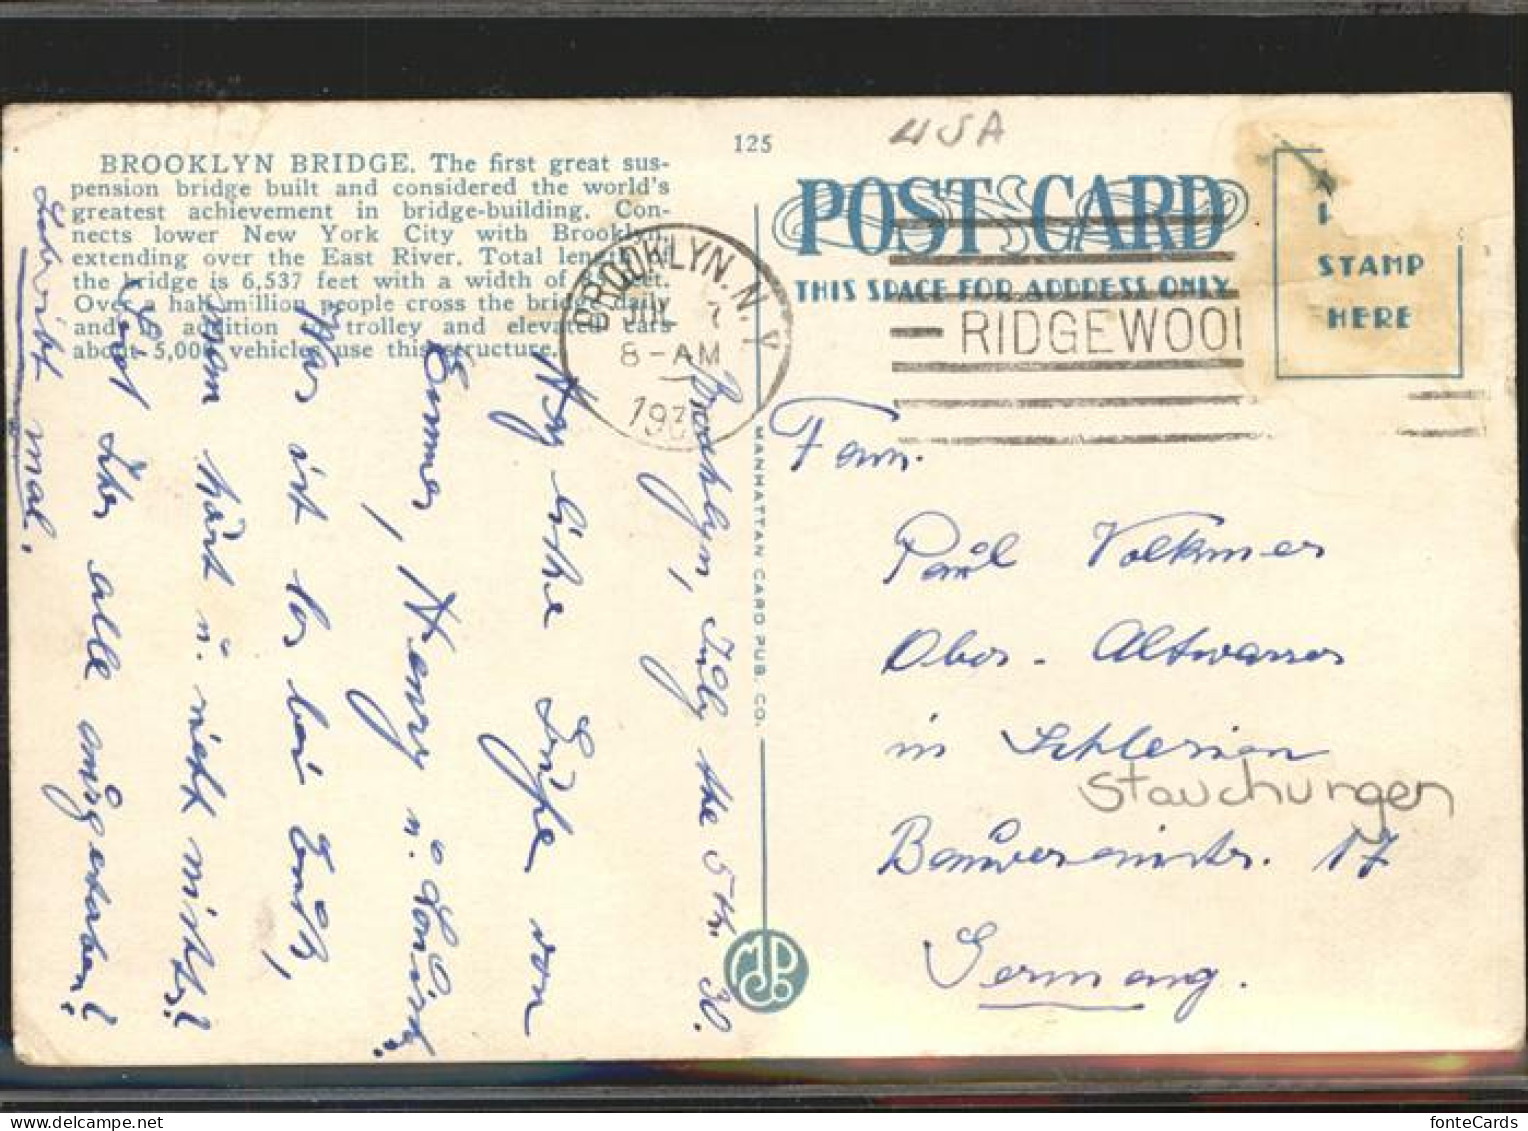 125
USA
BROOKLYN BRIDGE. The first great sus-
pension bridge built and considered the world's
greatest achievement in bridge-building. Con-
nects lower New York City with Brooklyn,
extending over the East River. Total length of
the bridge is 6,537 feet with a width of feet.
Over a half million people cross the bridge daily
and in addition to trolley and elevated cars
about 5,000 vehicles use this structure.
POST CARD
THIS SPACE FOR ADDRESS ONLY
STAMP
HERE
BROOKLYN. N.Y.
JUL 7
8-AM
193
RIDGEWOO
MANHATTAN CARD PUB. CO.
MCPCo
Brooklyn, July the 5th. 30.
Grüße von
Emmer, Henry u.
Was ist los bei Euch,
man hört u. nicht
Seid Ihr alle ausgestorben?
Schreibt mal.
Fam.
Paul Volkmer
Ober-Altwasser
in Schlesien
Stauchungen
17
Germany.
fonteCards